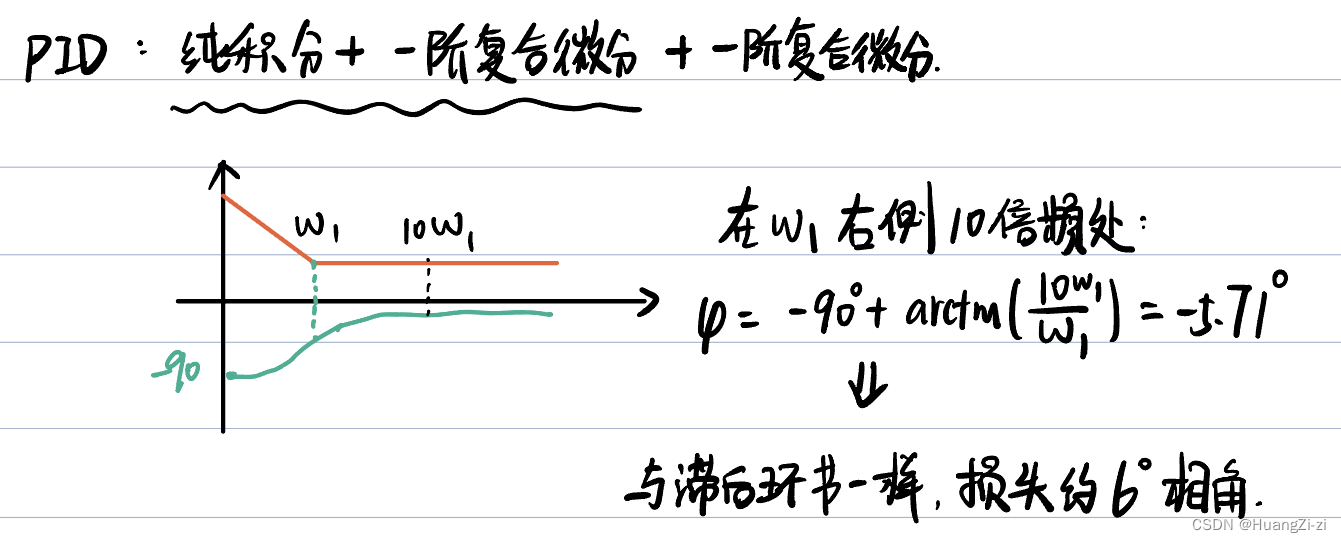 PID: 纯积分 + 一阶复合微分 + 一阶复合微分.
ω₁ 10ω₁
-90
在 ω₁ 右侧 10倍频处:
φ = -90° + arctan(10ω₁/ω₁) = -5.71°
⇓
与滞后环节一样, 损失约 6° 相角.
CSDN @HuangZi-zi